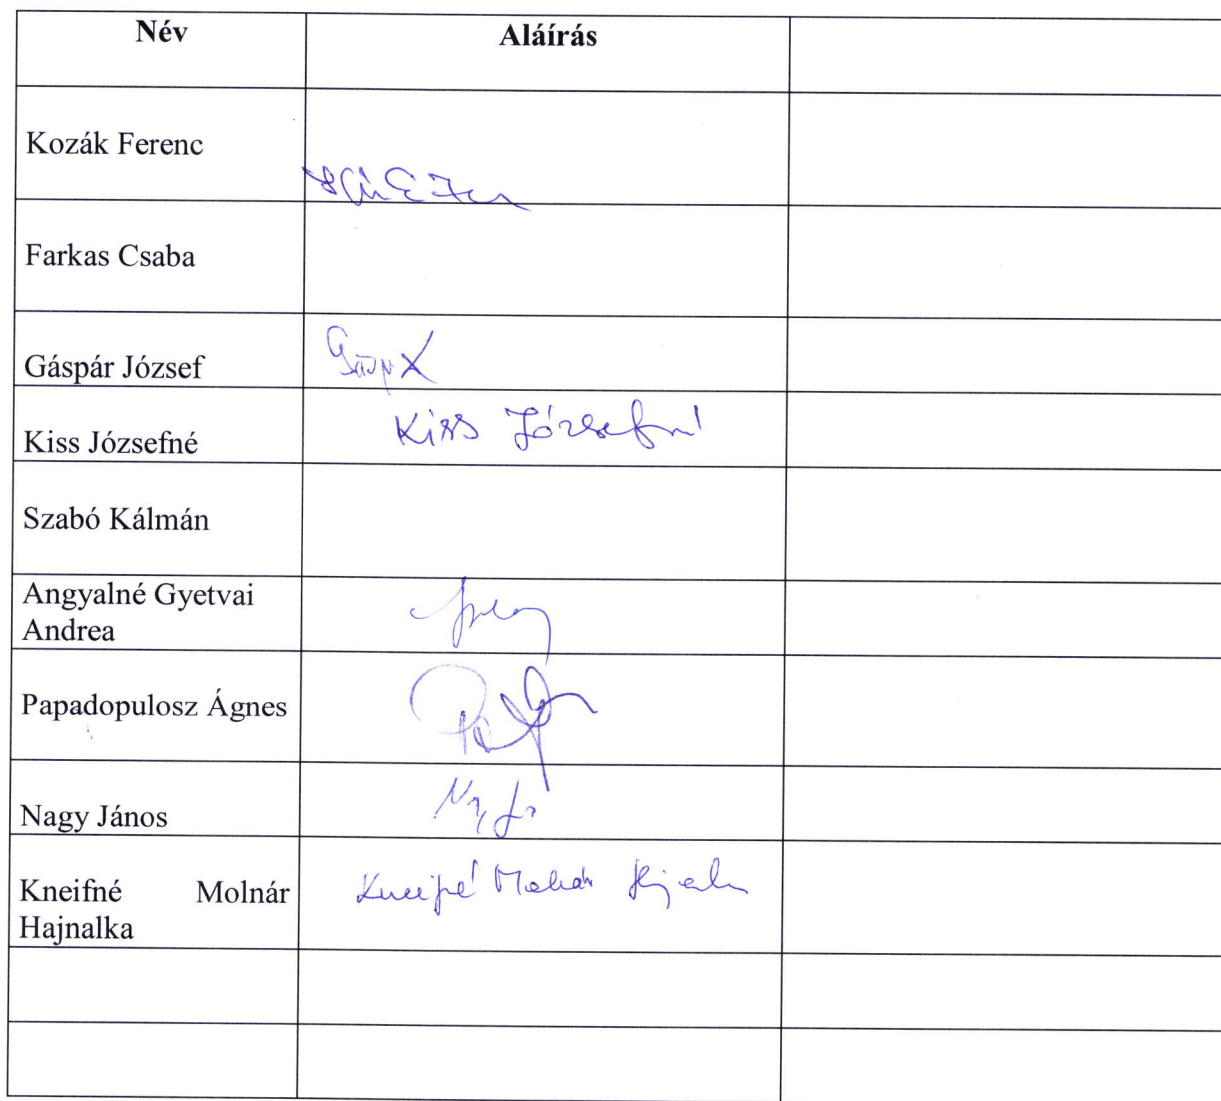 Név
Aláírás
Kozák Ferenc
Farkas Csaba
Gáspár József
Kiss Józsefné
Kiss Józsefné
Szabó Kálmán
Angyalné Gyetvai
Andrea
Papadopulosz Ágnes
Nagy János
Kneifné Molnár
Hajnalka